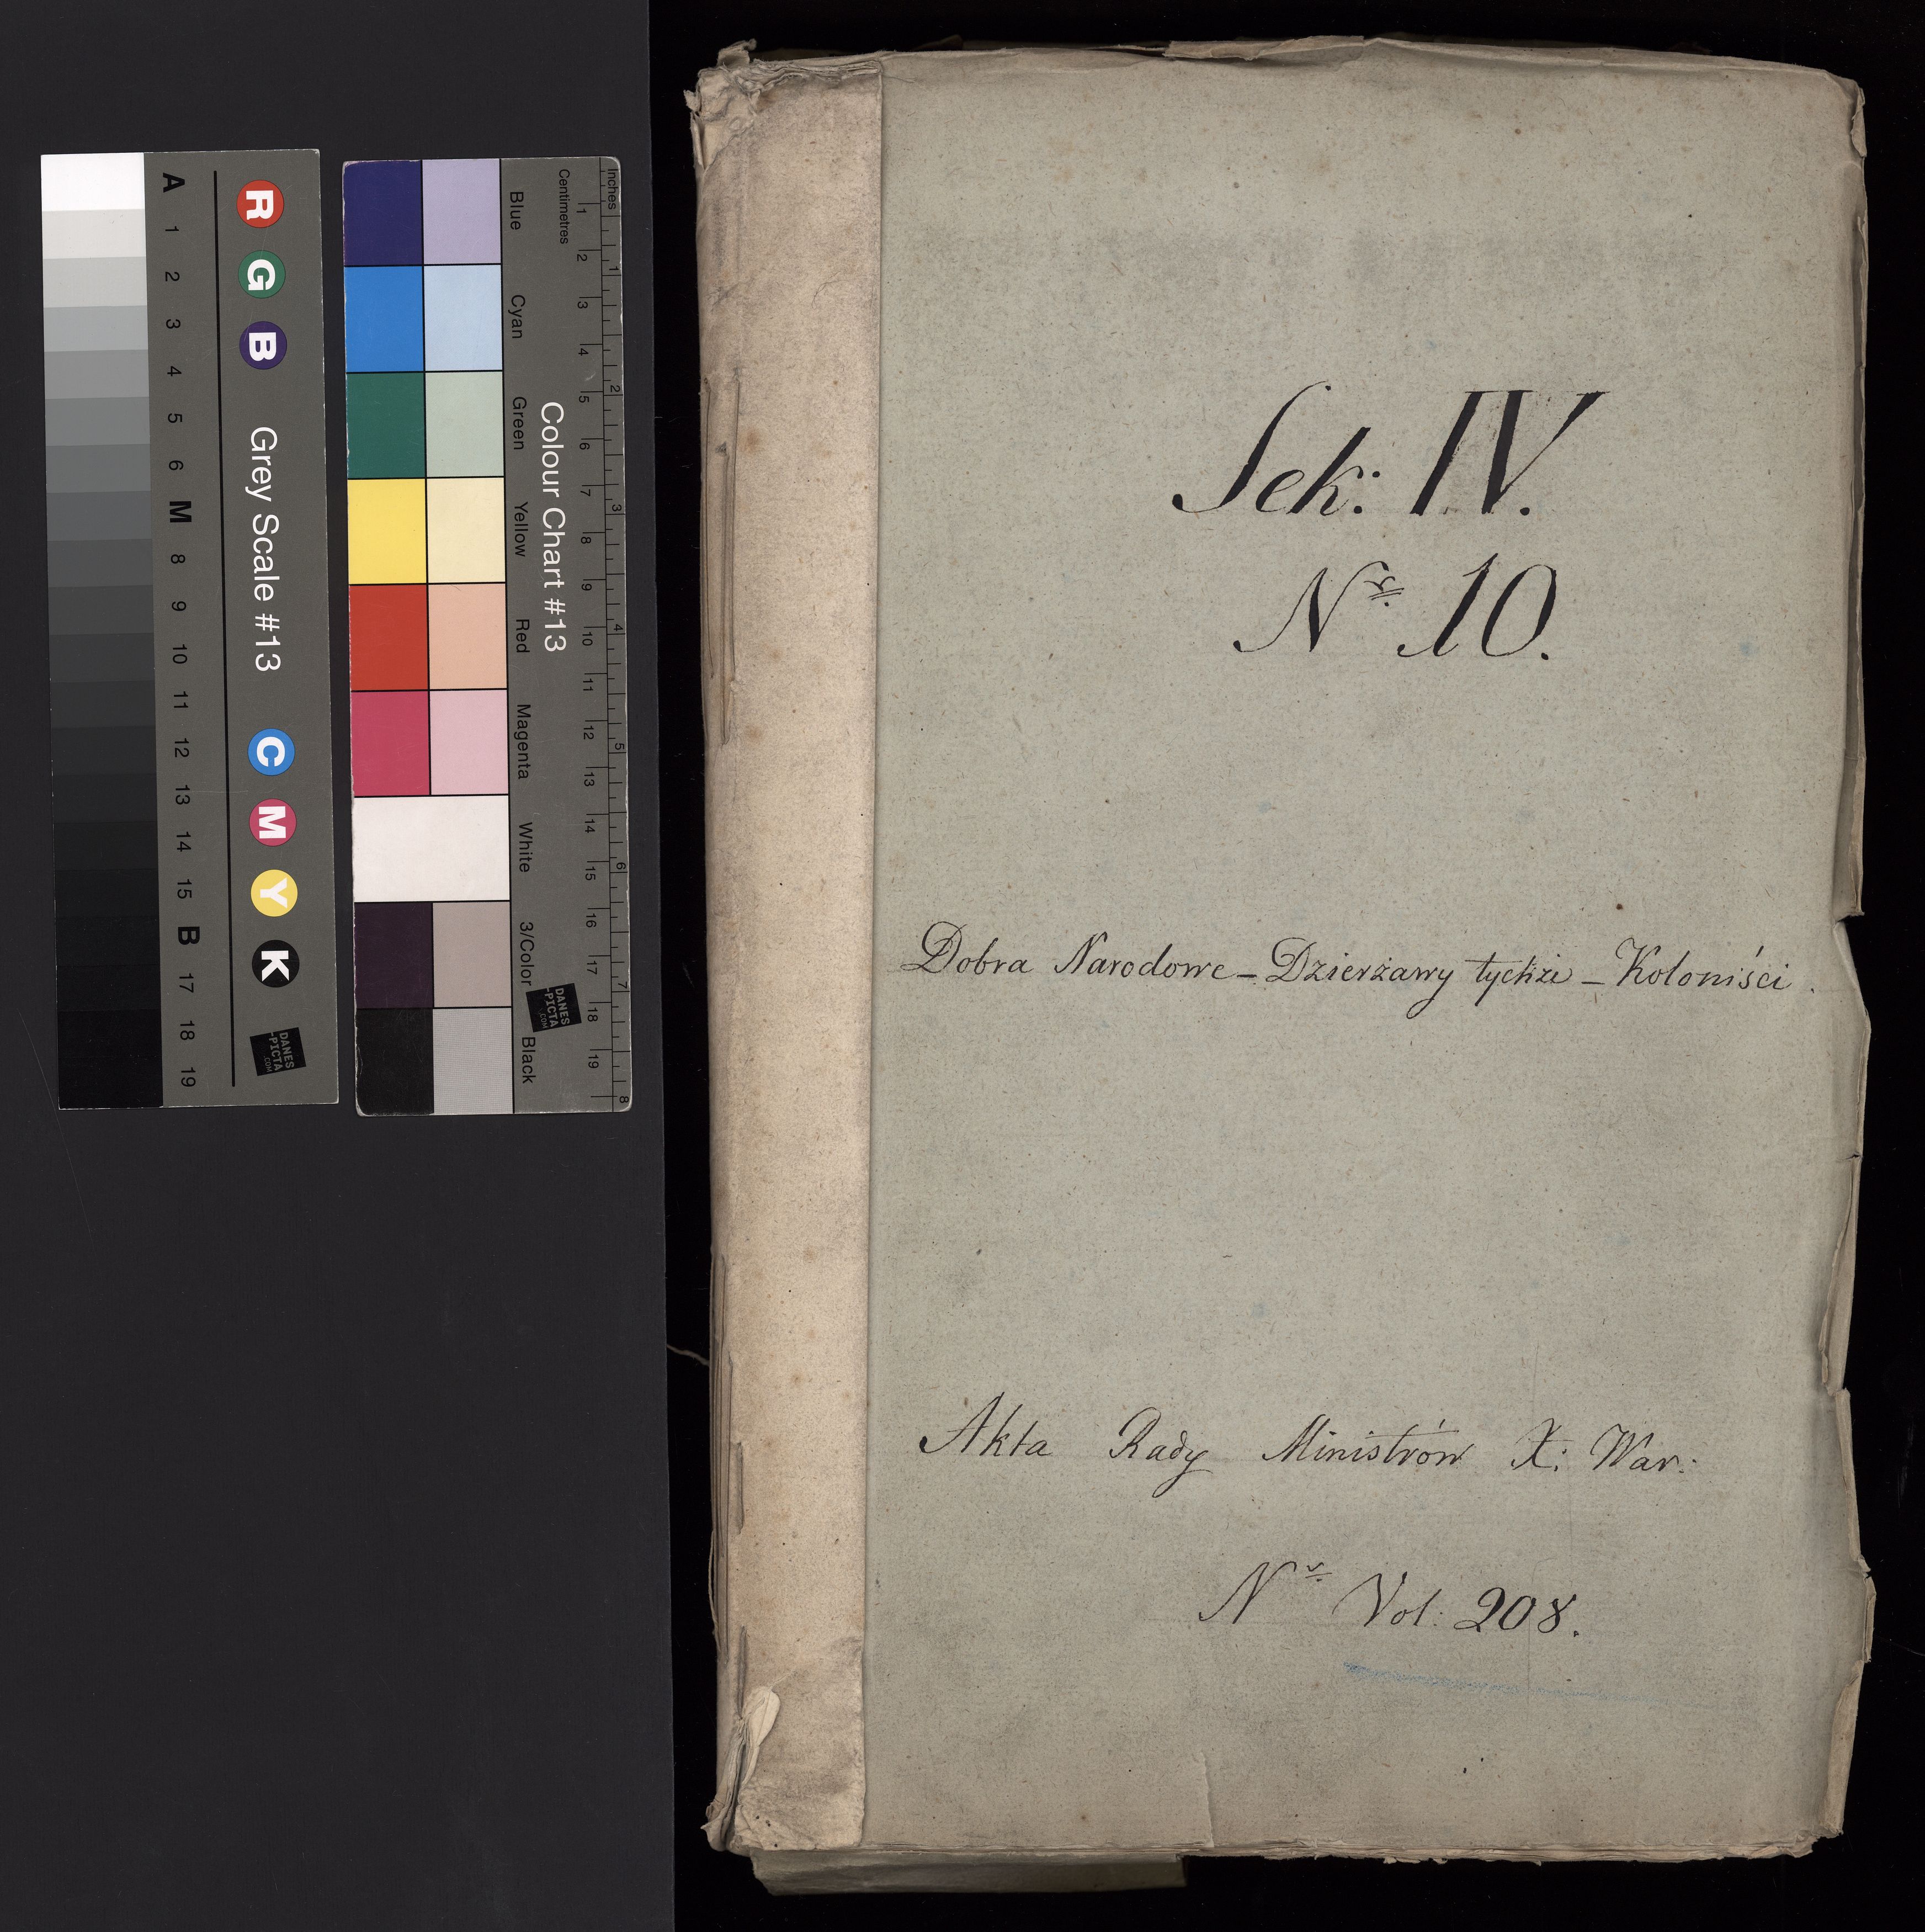 Sek: IV.
Nr. 10.
Dobra Narodowe – Dzierżawy tychże – Koloniści.
Akta Rady Ministrów X: War:
Nr. Vol: 208.
A 1 2 3 4 5 6 M 8 9 10 11 12 13 14 15 B 17 18 19
R G B Grey Scale #13 C M Y K
DANES
PICTA
.COM
Blue Cyan Green Yellow Red Magenta White 3/Color Black
Colour Chart #13
DANES
PICTA
.COM
Centimetres 1 2 3 4 5 6 7 8 9 10 11 12 13 14 15 16 17 18 19
Inches 1 2 3 4 5 6 7 8